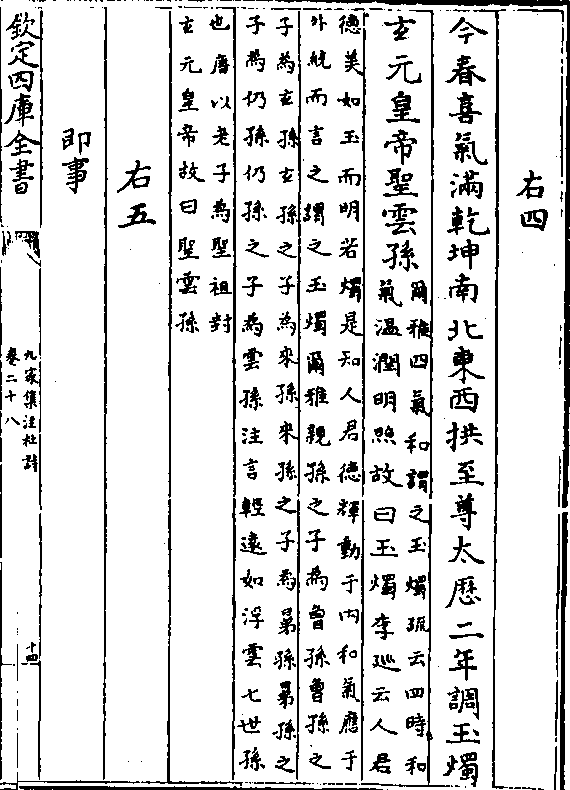 右四
今春喜氣滿乾坤南北東西拱至尊太厯二年調玉燭
玄元皇帝聖雲孫
爾雅四氣和謂之玉燭疏云四時和
氣溫潤明照故曰玉燭李巡云人君
德美如玉而明若燭是知人君德輝動于内和氣應于
外統而言之謂之玉燭爾雅親孫之子為曽孫曽孫之
子為玄孫玄孫之子為來孫來孫之子為晜孫晜孫之
子為仍孫仍孫之子為雲孫注言輕遠如浮雲七世孫
也唐以老子為聖祖封
玄元皇帝故曰聖雲孫
右五
即事
欽定四庫全書
九家集注杜詩
卷二十八
十四